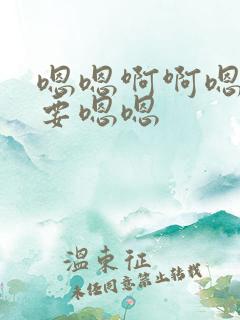 嗯嗯啊啊嗯
要嗯嗯
温东征
未经同意禁止转载